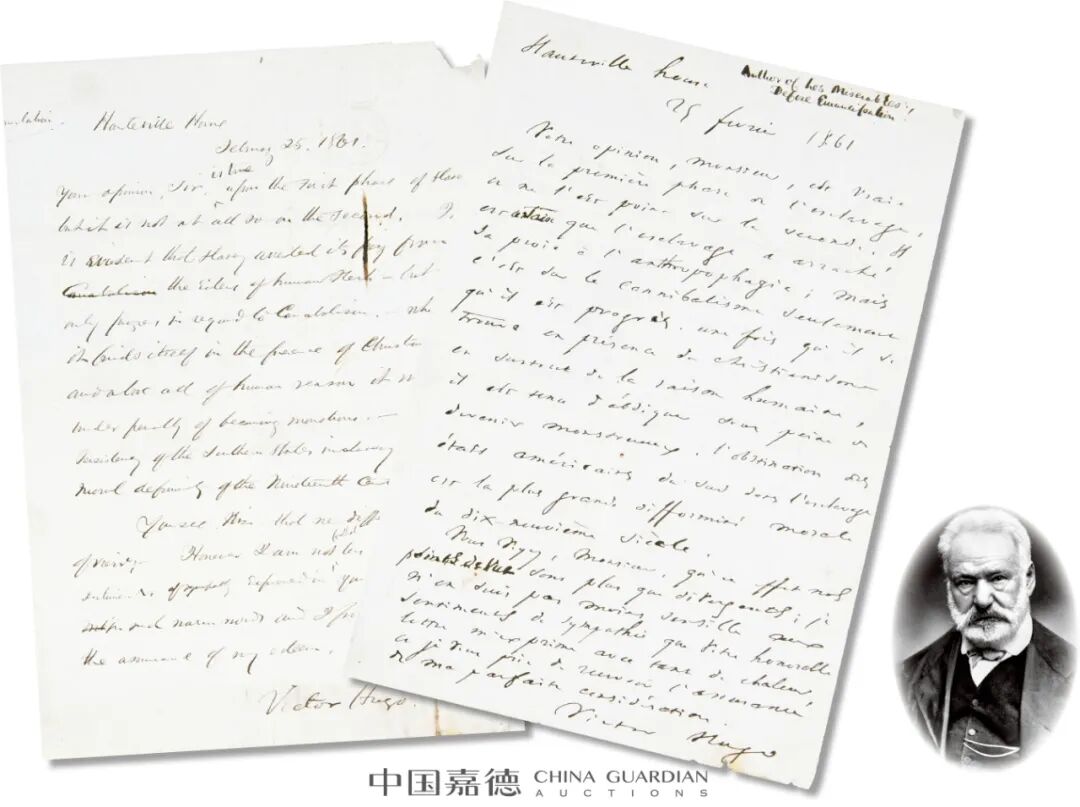 Hauteville House
February 25. 1861.
is true
Your opinion, Sir, upon the first phase of Slave
but it is not at all so on the second. I
is evident that Slavery averted its prey from
Canabalism the Eaters of human flesh — but
only progress in regard to Canabalism. — Whe
it finds itself in the presence of Christia
and above all of human reason it
under penalty of becoming monstrous —
of the Southern States in slavery
moral deformity of the Nineteenth Cen
You see then that
of view. However I am not les
sentiments of sympathy expressed in you
such warm words and I
the assurance of my esteem.
Victor Hugo.
Hauteville house
Author of Les Misérables;
Before Emancipation.
25 février 1861
Votre opinion, monsieur, est vraie
sur la première phase de l'esclavage,
et ne l'est point sur la seconde. Il
est certain que l'esclavage a arraché
sa proie à l'anthropophagie; mais
c'est sur le cannibalisme seulement
qu'il est progrès. une fois qu'il se
trouve en présence du christianisme
et surtout de la raison humaine,
il est tenu d'abdiquer sous peine de
devenir monstrueux. l'obstination des
états américains du sud dans l'esclavage
est la plus grande difformité morale
du dix-neuvième siècle.
Vous voyez, Monsieur, qu'en effet nos
points de vue sont plus que divergents; je
n'en suis pas moins sensible aux
sentiments de sympathie que votre honorable
lettre m'exprime avec tant de chaleur
et je vous prie de recevoir l'assurance
de ma parfaite considération.
Victor Hugo
中国嘉德 CHINA GUARDIAN
AUCTIONS